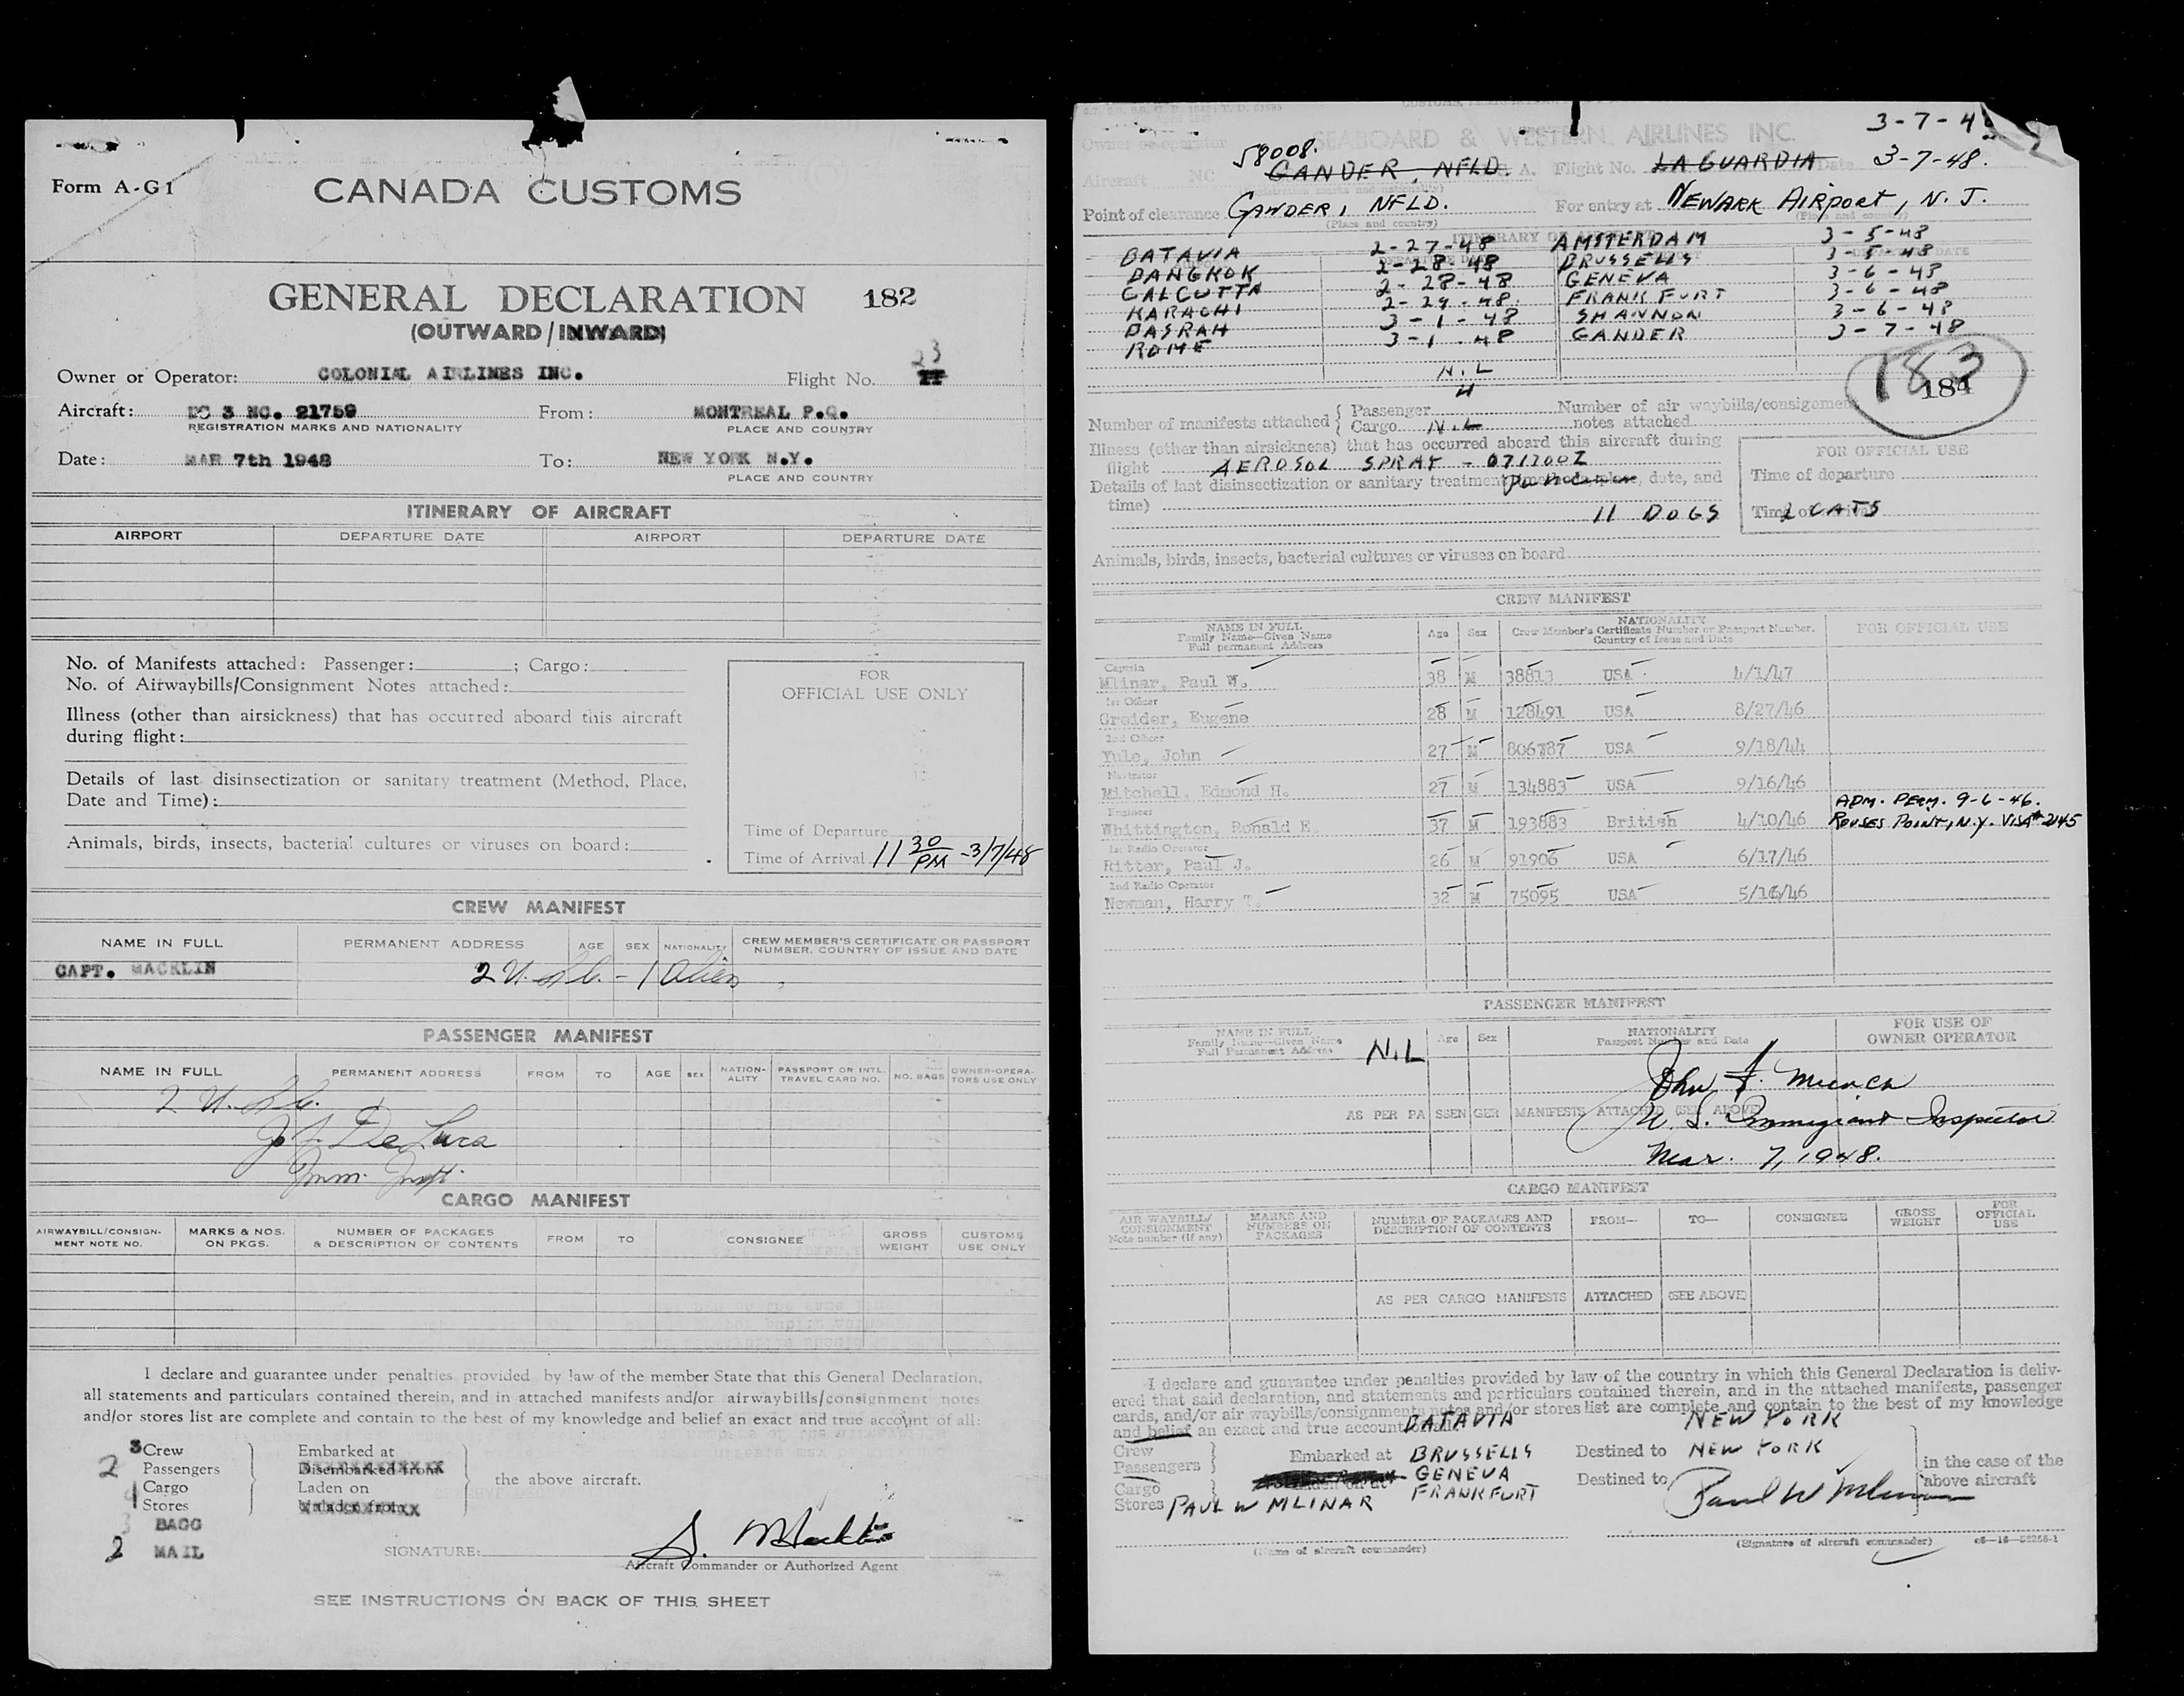 Form A-G1
CANADA CUSTOMS
GENERAL DECLARATION 182
(OUTWARD/INWARD)
23
Owner or Operator: COLONIAL AIRLINES INC. Flight No.
Aircraft: DC 3 NC. 21759 From: MONTREAL P.Q.
REGISTRATION MARKS AND NATIONALITY PLACE AND COUNTRY
Date: MAR 7th 1948 To: NEW YORK N.Y.
PLACE AND COUNTRY
ITINERARY OF AIRCRAFT
AIRPORT DEPARTURE DATE AIRPORT DEPARTURE DATE
No. of Manifests attached: Passenger: ; Cargo:
No. of Airwaybills/Consignment Notes attached:
Illness (other than airsickness) that has occurred aboard this aircraft
during flight:
Details of last disinsectization or sanitary treatment (Method, Place,
Date and Time):
Animals, birds, insects, bacterial cultures or viruses on board:
FOR
OFFICIAL USE ONLY
Time of Departure
Time of Arrival 11 30 PM -3/7/48
CREW MANIFEST
NAME IN FULL PERMANENT ADDRESS AGE SEX NATIONALITY CREW MEMBER'S CERTIFICATE OR PASSPORT
NUMBER, COUNTRY OF ISSUE AND DATE
CAPT. MACKLIN 2 U.S.C. - 1 Alien
PASSENGER MANIFEST
NAME IN FULL PERMANENT ADDRESS FROM TO AGE SEX NATION-ALITY PASSPORT OR INTL. TRAVEL CARD NO. NO. BAGS OWNER-OPERA-TORS USE ONLY
2 U.S.C.
De Luca
Imm. Insp.
CARGO MANIFEST
AIRWAYBILL/CONSIGN-MENT NOTE NO. MARKS & NOS. ON PKGS. NUMBER OF PACKAGES & DESCRIPTION OF CONTENTS FROM TO CONSIGNEE GROSS WEIGHT CUSTOMS USE ONLY
I declare and guarantee under penalties provided by law of the member State that this General Declaration,
all statements and particulars contained therein, and in attached manifests and/or airwaybills/consignment notes
and/or stores list are complete and contain to the best of my knowledge and belief an exact and true account of all:
3 Crew Embarked at
2 Passengers Disembarked from the above aircraft.
Cargo Laden on
1 Stores Unladen from
3 BAGG
2 MAIL
SIGNATURE: S. Macklin
Aircraft Commander or Authorized Agent
SEE INSTRUCTIONS ON BACK OF THIS SHEET
3-7-48
Owner or operator SEABOARD & WESTERN AIRLINES INC.
58008.
Aircraft NC GANDER, NFLD. S. A. Flight No. LA GUARDIA Date 3-7-48.
Point of clearance GANDER, NFLD. For entry at NEWARK AIRPORT, N. J.
(Place and country) (Place and country)
ITINERARY OF AIRCRAFT
BATAVIA 2-27-48 AMSTERDAM 3-5-48
BANGKOK 2-28-48 BRUSSELLS 3-5-48
CALCUTTA 2-28-48 GENEVA 3-6-48
KARACHI 2-29-48 FRANKFURT 3-6-48
BASRAH 3-1-48 SHANNON 3-6-48
ROME 3-1-48 GANDER 3-7-48
NIL
4
183
184
Number of manifests attached Passenger Number of air waybills/consignment
Cargo NIL notes attached
Illness (other than airsickness) that has occurred aboard this aircraft during
flight AEROSOL SPRAY - 071700Z
Details of last disinsectization or sanitary treatment (method, place, date, and
time)
11 DOGS 2 CATS
FOR OFFICIAL USE
Time of departure
Time of arrival
Animals, birds, insects, bacterial cultures or viruses on board
CREW MANIFEST
NAME IN FULL
Family Name—Given Name
Full permanent Address
Age Sex
NATIONALITY
Crew Member's Certificate Number or Passport Number,
Country of Issue and Date
FOR OFFICIAL USE
Captain
Mlinar, Paul W. 38 M 38813 USA 4/1/47
1st Officer
Greider, Eugene 28 M 128491 USA 8/27/46
2nd Officer
Yule, John 27 M 806787 USA 9/18/44
Navigator
Mitchell, Edmond H. 27 M 134883 USA 9/16/46
Engineer
Whittington, Ronald E. 37 M 193883 British 4/10/46 ADM. PERM. 9-6-46.
ROUSES POINT, N.Y. VISA # 2145
1st Radio Operator
Ritter, Paul J. 26 M 91906 USA 6/17/46
2nd Radio Operator
Newman, Harry T. 32 M 75095 USA 5/16/46
PASSENGER MANIFEST
NAME IN FULL
Family Name—Given Name
Full Permanent Address
NIL
Age Sex
NATIONALITY
Passport Number and Date
FOR USE OF
OWNER OPERATOR
John F.
AS PER PASSENGER MANIFESTS ATTACHED (SEE ABOVE)
U. S. Immigrant Inspector
Mar. 7, 1948.
CARGO MANIFEST
AIR WAYBILL/CONSIGNMENT Note number (if any) MARKS AND NUMBERS ON PACKAGES NUMBER OF PACKAGES AND DESCRIPTION OF CONTENTS FROM— TO— CONSIGNEE GROSS WEIGHT FOR OFFICIAL USE
AS PER CARGO MANIFESTS ATTACHED (SEE ABOVE)
I declare and guarantee under penalties provided by law of the country in which this General Declaration is deliv-
ered that said declaration, and statements and particulars contained therein, and in the attached manifests, passenger
cards, and/or air waybills/consignments notes and/or stores list are complete and contain to the best of my knowledge
and belief an exact and true account of all
BATAVIA NEW YORK
Crew
Passengers Embarked at BRUSSELLS Destined to NEW YORK in the case of the
Cargo Laden on at GENEVA Destined to above aircraft
Stores PAUL W MLINAR FRANKFURT Paul W Mlinar
(Name of aircraft commander) (Signature of aircraft commander)